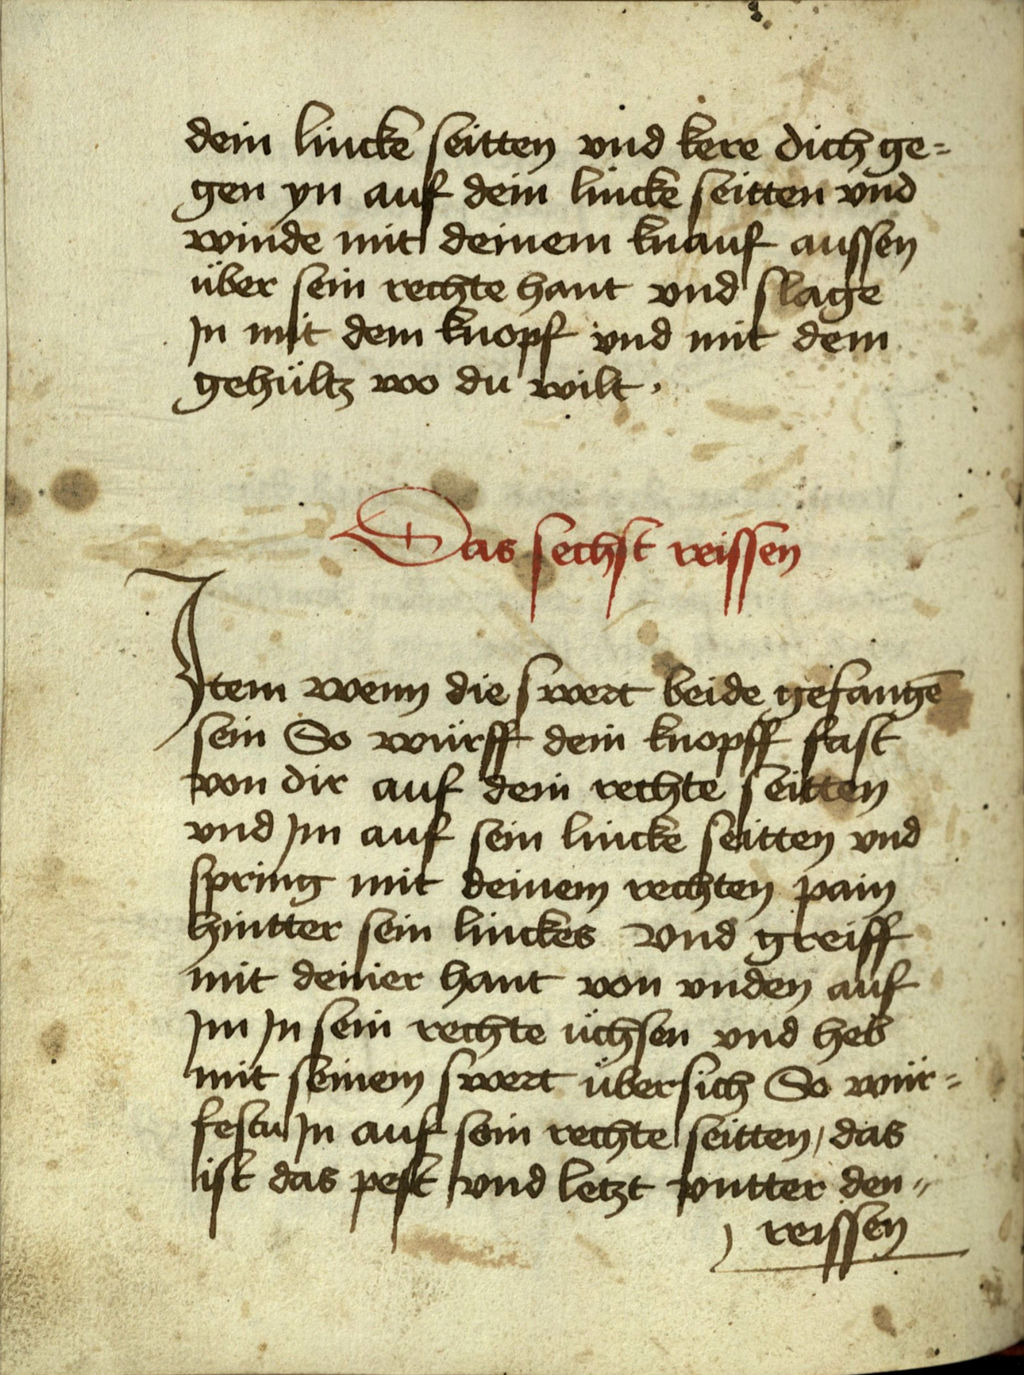 dein lincke seitten vnd kere dich ge=
gen yn auf dein lincke seitten vnd
winde mit deinem knauf aussen
über sein rechte hant vnd slage
Jn mit dem knopf vnd mit dem
gehültz wo du wilt .
Das sechst reissen
Jtem wenn die swert beide gefangē
sein So würff dein knopff fast
von dir auf dein rechte seitten
vnd Jm auf sein lincke seitten vnd
spring mit deinem rechten pain
hintter sein linckes Vnd greiff
mit deiner hant von vnden auf
Jm Jn sein rechte üchsen vnd heb
mit seinem swert übersich So wür=
festu Jn auf sein rechte seitten / das
ist das pest vnd letzt vntter den=
reissen